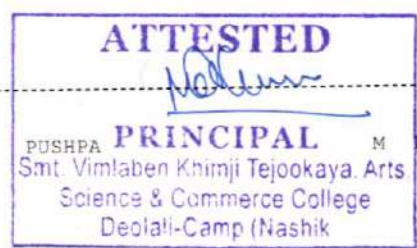 ATTESTED
PUSHPA PRINCIPAL M
Smt. Vimlaben Khimji Tejookaya. Arts
Science & Commerce College
Deolali-Camp (Nashik